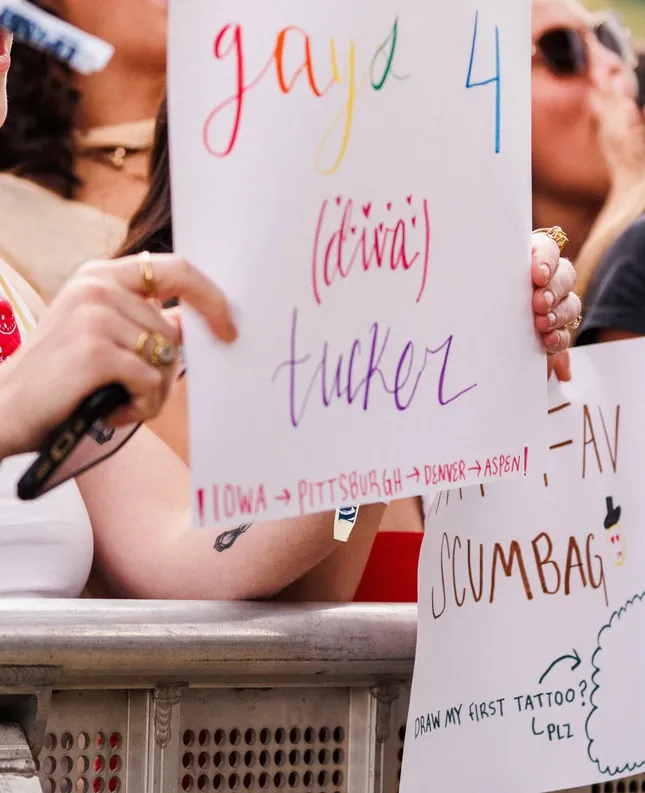 gays 4
(diva)
tucker
!IOWA → PITTSBURGH → DENVER → ASPEN!
= AV
SCUMBAG
DRAW MY FIRST TATTOO?
PLZ